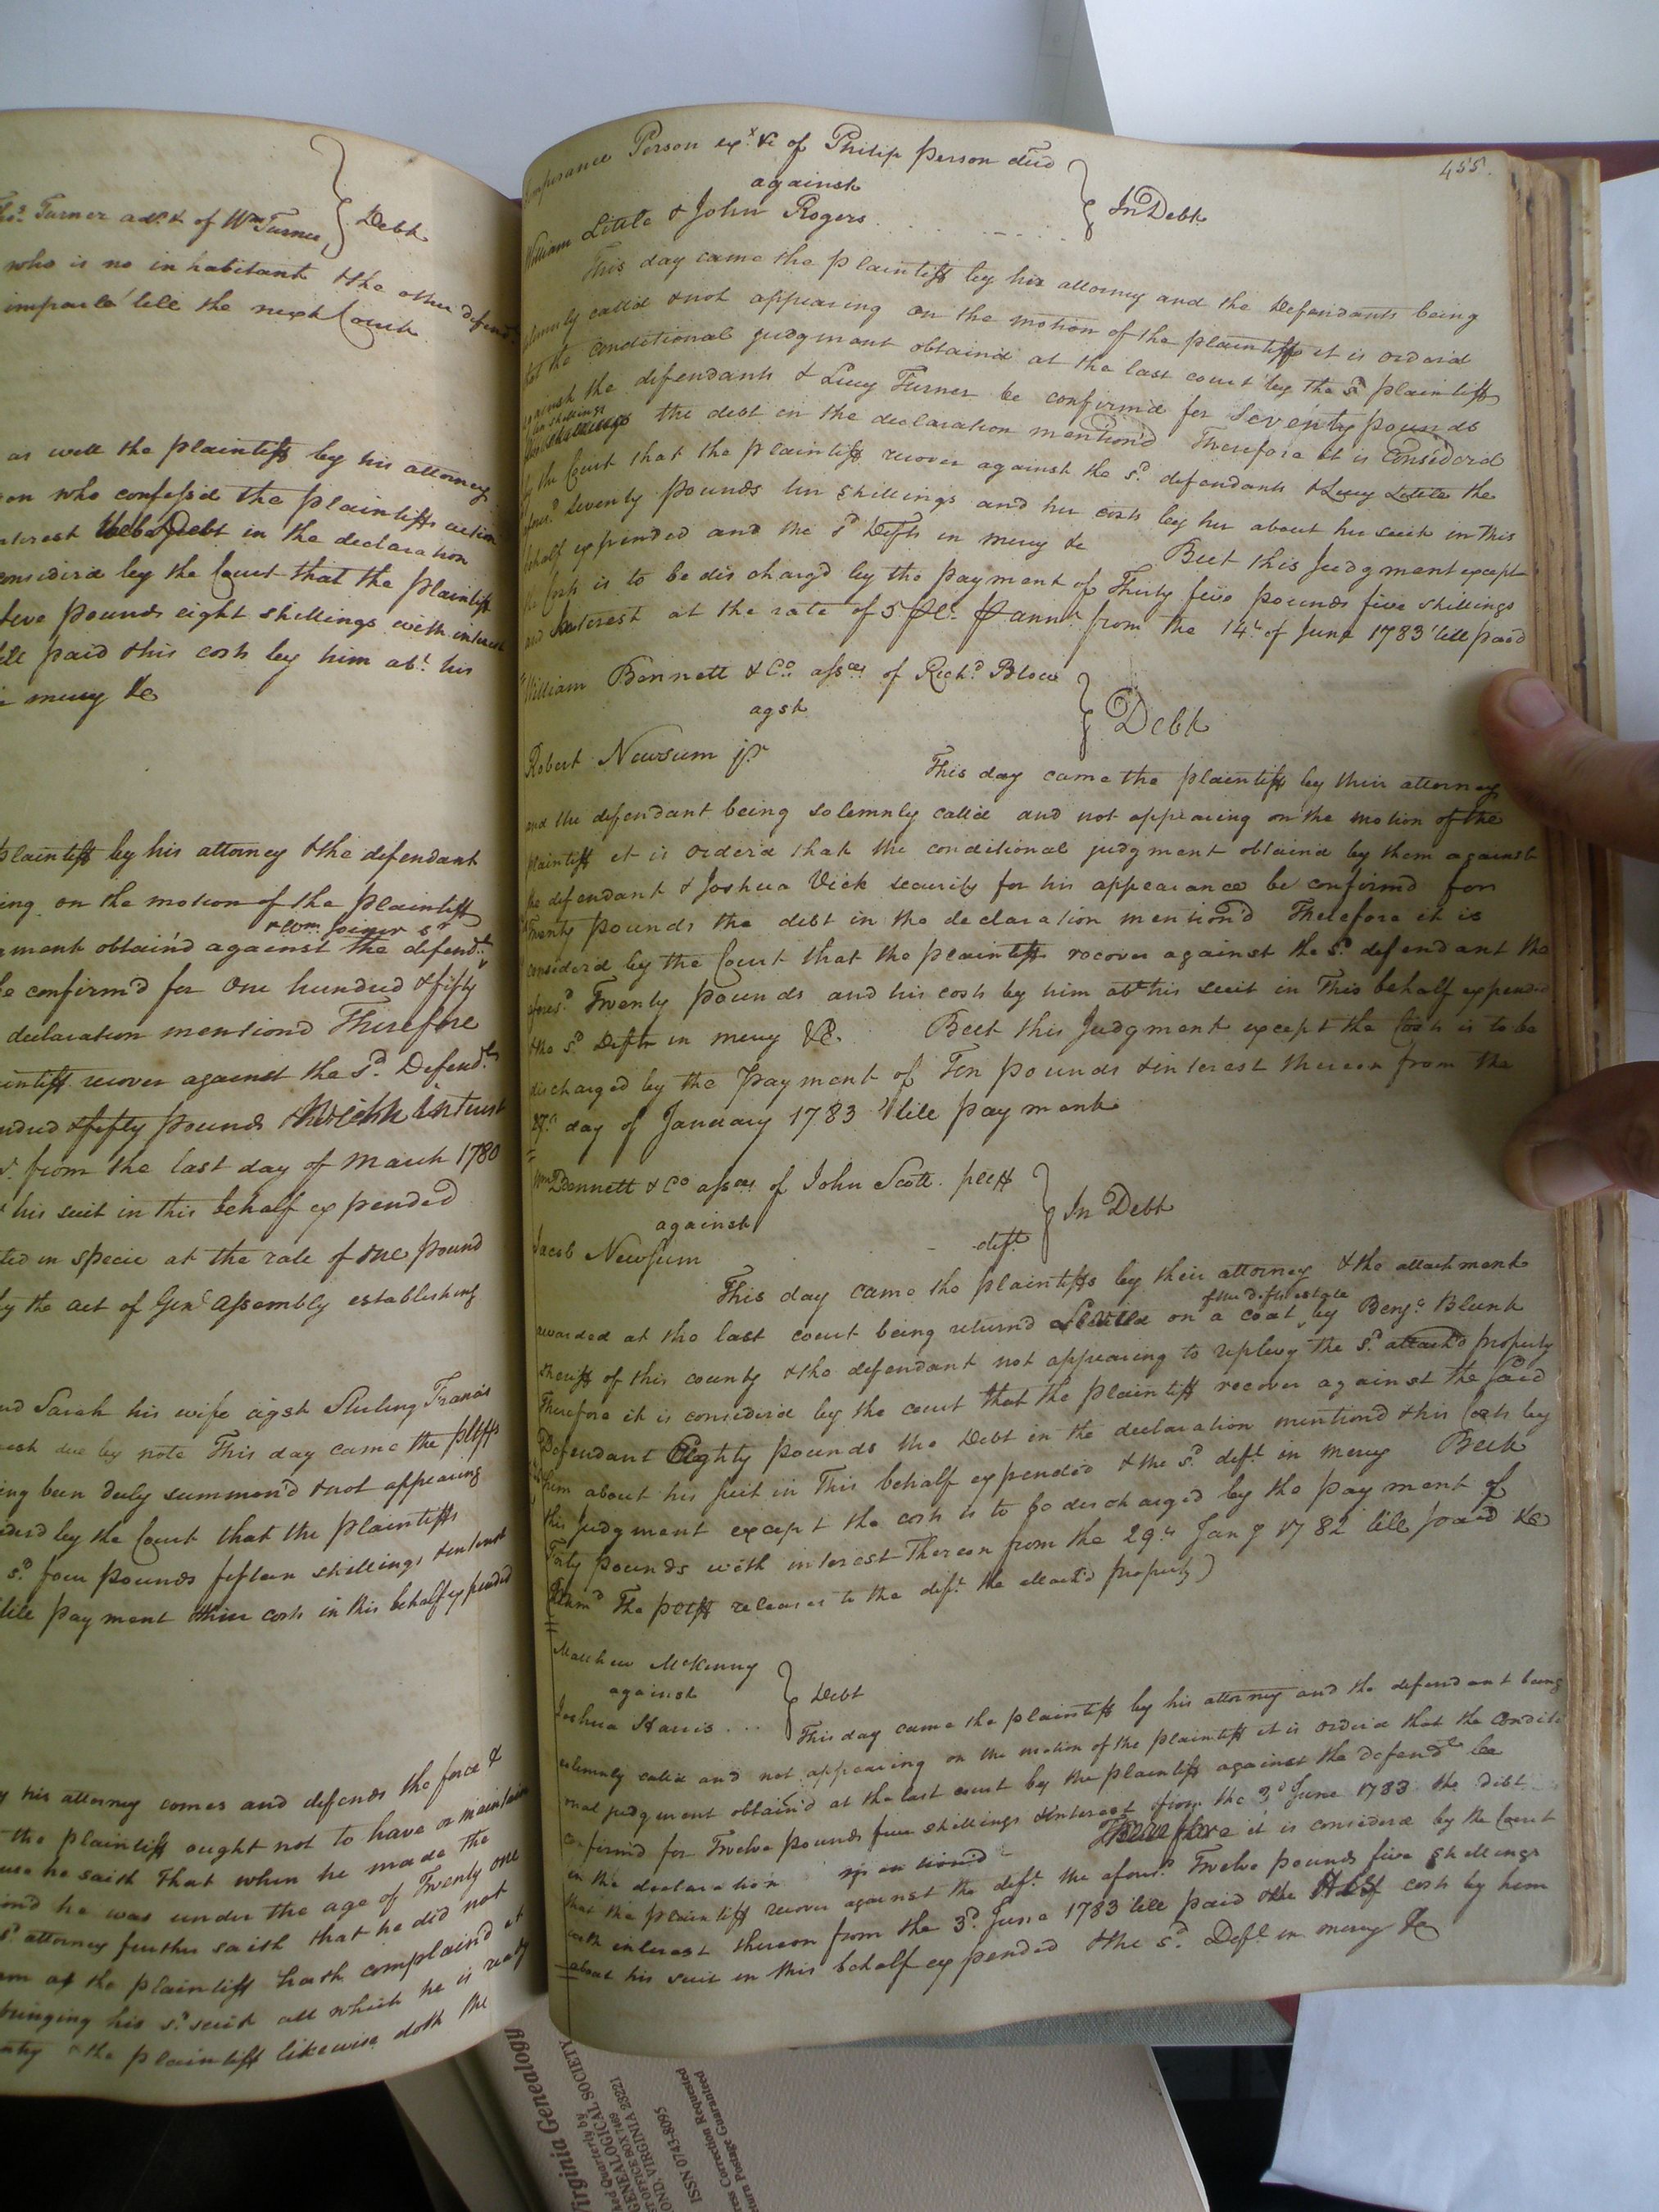 hos. Turner adr. & of Wm Turner } Debt
who is no inhabitant & the other defendt.
imparle till the next Court
as well the plaintiff by his attorney
on who confess'd the plaintiffs action
terest Debt in the declaration
considerd by the Court that the plaintiff
five pounds eight shillings with interest
till paid & his costs by him abt. his
mercy &c
plaintiff by his attorney & the defendant
ing on the motion of the plaintiff
& Wm. Joiner sr
gment obtain'd against the defendt.
be confirm'd for One hundred & fifty
declaration mentiond Therefore
intiff recover against the sd. Defendts
ndred & fifty pounds with Interest
from the last day of march 1780
his suit in this behalf expended
ted in specie at the rate of one pound
by the act of Genl. Assembly establishing
nd Sarah his wife agst Sterling Francis
due by note This day came the pltffs
ing been duly summon'd & not appearing
iderd by the Court that the plaintiffs
sd. four pounds fifteen shillings & interest
till payment & their costs in this behalf expended
y his attorney comes and defends the force &
the plaintiff ought not to have or maintain
use he saith That when he made the
iond he was under the age of Twenty one
sd. attorney further saith that he did not
the plaintiff hath complain'd
bringing his sd. suit all which he is ready
ntry & the plaintiff likewise doth the
455.
Temperance Person exx. &c of Philip Person decd
against } In Debt
William Little & John Rogers
This day came the plaintiff by her attorney and the Defendants being
solemnly calld & not appearing on the motion of the plaintiff it is orderd
that the conditional judgment obtaind at the last court by the sd. plaintiff
against the defendants & Lucy Turner be confirm'd for Seventy pounds
ten shillings
the debt in the declaration mention'd Therefore it is Considerd
by the Court that the plaintiff recover against the sd. defendants & Lucy Little the
aforesd. seventy pounds ten shillings and her costs by her about her suit in this
behalf expended and the sd Defts in mercy &c But this Judgment except
the Costs is to be dischargd by the payment of Thirty five pounds five shillings
and Interest at the rate of 5 P Ct. P annm. from the 14th of June 1783 till paid
William Bennett & Co. assees of Richd. Blow
agst } Debt
Robert Newsum jr.
This day came the plaintiff by their attorney
and the defendant being solemnly calld and not appearing on the motion of the
plaintiff it is orderd that the conditional judgment obtaind by them against
the defendant & Joshua Vick security for his appearance be confirmd for
Twenty pounds the debt in the declaration mention'd Therefore it is
considerd by the Court that the plaintiff recover against the sd. defendant the
aforesd. Twenty pounds and his costs by him abt his suit in This behalf expended
& the sd. Deft in mercy &c. But this Judgment except the Costs is to be
discharged by the payment of Ten pounds & interest thereon from the
day of January 1783 till payment
Wm. Bennett & Co assees of John Scott. pltff
against } In Debt
Jacob Newsum deft.
This day came the plaintiffs by their attorney & the attachment
of the Defts estate
awarded at the last court being returnd on a coat by Benja. Blunt
sheriff of this county & the defendant not appearing to replevy the sd. attach'd property
Therefore it is considerd by the court that the plaintiff recover against the said
Defendant Eighty pounds the Debt in the declaration mentiond & his Costs by
him about his suit in This behalf expended & the sd. deft. in mercy But
this Judgment except the costs is to be discharged by the payment of
Forty pounds with interest Thereon from the 29th Jany 1782 till paid &c
The pltff releases to the deft. the attach'd property)
Matthew McKinny
against } Debt
Joshua Harris . . .
This day came the plaintiff by his attorney and the defendant being
solemnly calld and not appearing on the motion of the plaintiff it is orderd that the conditi
onal judgment obtain'd at the last court by the plaintiff against the defendt. be
confirmd for Twelve pounds five shillings & Interest from the 3d June 1783 the debt
in the declaration mentiond Therefore it is considerd by the Court
that the plaintiff recover against the deft. the aforesd. Twelve pounds five shillings
with interest thereon from the 3d. June 1783 till paid & the costs by him
about his suit in this behalf expended & the sd. Deft in mercy &c
Virginia Genealogy
ked Quarterly by
GENEALOGICAL SOCIETY
ST OFFICE BOX 7469
OND, VIRGINIA 23221
ISSN 0743-8095
ress Correction Requested
turn Postage Guaranteed